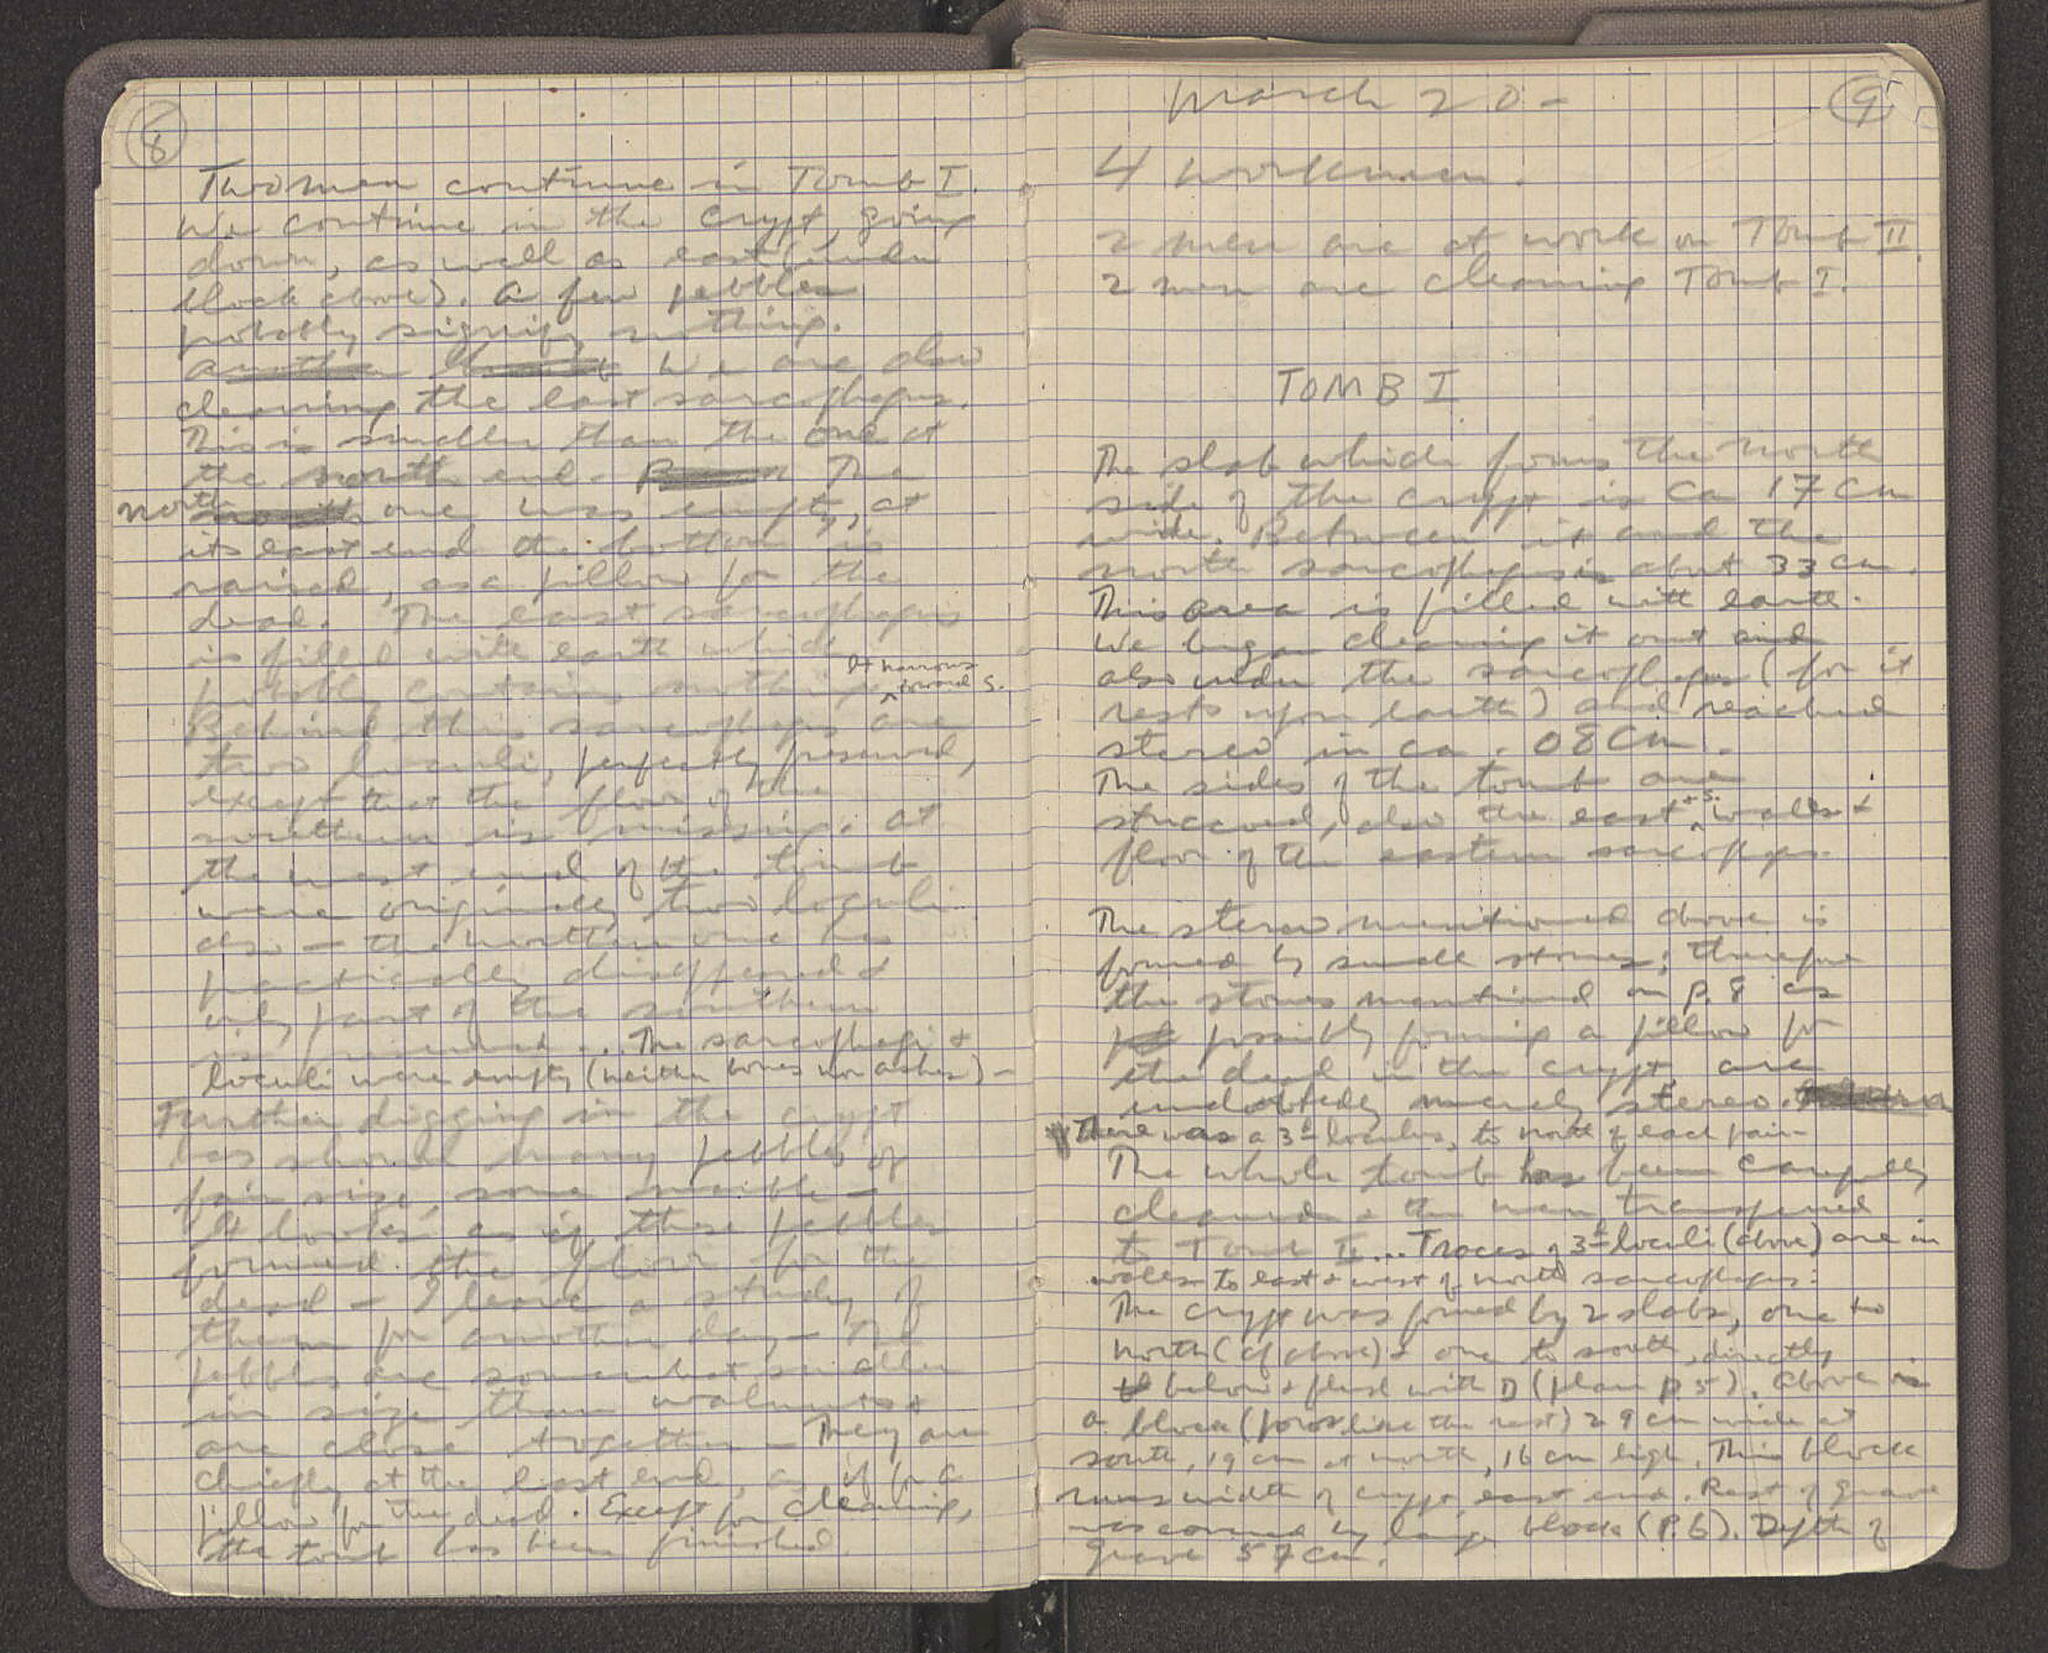 8
Two men continue in Tomb I.
We continue in the crypt, going
down, as well as east (under
block above). A few pebbles
probably signify nothing.
Another We are also
cleaning the east sarcophagus.
This is smaller than the one at
the north end. The
north one was empty, at
its east end the bottom is
raised, as a pillow for the
dead. The east sarcophagus
is filled with earth which
probably contains nothing. It narrows
toward S.
Behind this sarcophagus are
two loculi, perfectly preserved,
except that the floor of the
northern is missing. At
the west end of the tomb
were originally two loculi
also — the northern one has
practically disappeared &
only part of the southern
is preserved... The sarcophagi &
loculi were empty (neither bones nor ashes) —
Further digging in the crypt
has shown many pebbles of
fair size, some marble —
It looks as if these pebbles
formed the floor for the
dead — I leave a study of
them for another day — The
pebbles are somewhat smaller
in size than walnuts &
are close together — They are
chiefly at the east end, as if for a
pillow for the dead. Except for cleaning,
the tomb has been finished.
March 20 —
9
4 workmen.
2 men are at work on Tomb II.
2 men are cleaning Tomb I.
TOMB I
The slab which forms the north
side of the crypt is ca 17 cm
wide. Between it and the
north sarcophagus is about 33 cm.
This area is filled with earth.
We began cleaning it out and
also under the sarcophagus (for it
rests upon earth) and reached
stereo in ca .08 cm.
The sides of the tomb are
stuccoed, also the east + S. walls &
floor of the eastern sarcophagus.
The stereo mentioned above is
formed by small stones; therefore
the stones mentioned on p. 8 as
possibly forming a pillow for
the dead in the crypt are
undoubtedly merely stereo.
There was a 3rd loculus, to north of each pair —
The whole tomb has been carefully
cleaned & the men transferred
to Tomb II... Traces of 3rd loculi (above) are in
walls to east & west of north sarcophagus:
The crypt was formed by 2 slabs, one to
north (cf above) & one to south, directly
below & flush with D (plan p. 5). Above is
a block (poros like the rest) 29 cm wide at
south, 19 cm at north, 16 cm high. This block
runs width of crypt, east end. Rest of grave
was covered by large block (p. 6). Depth of
grave 57 cm.